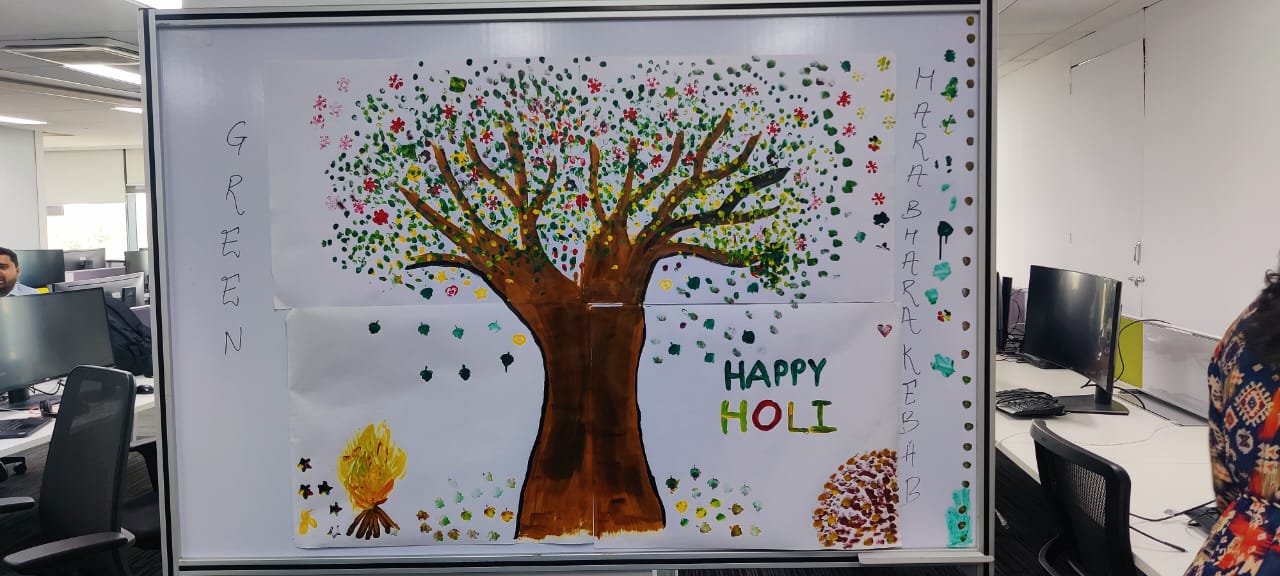 GREEN
HAPPY
HOLI
HARABHARA KEBAB